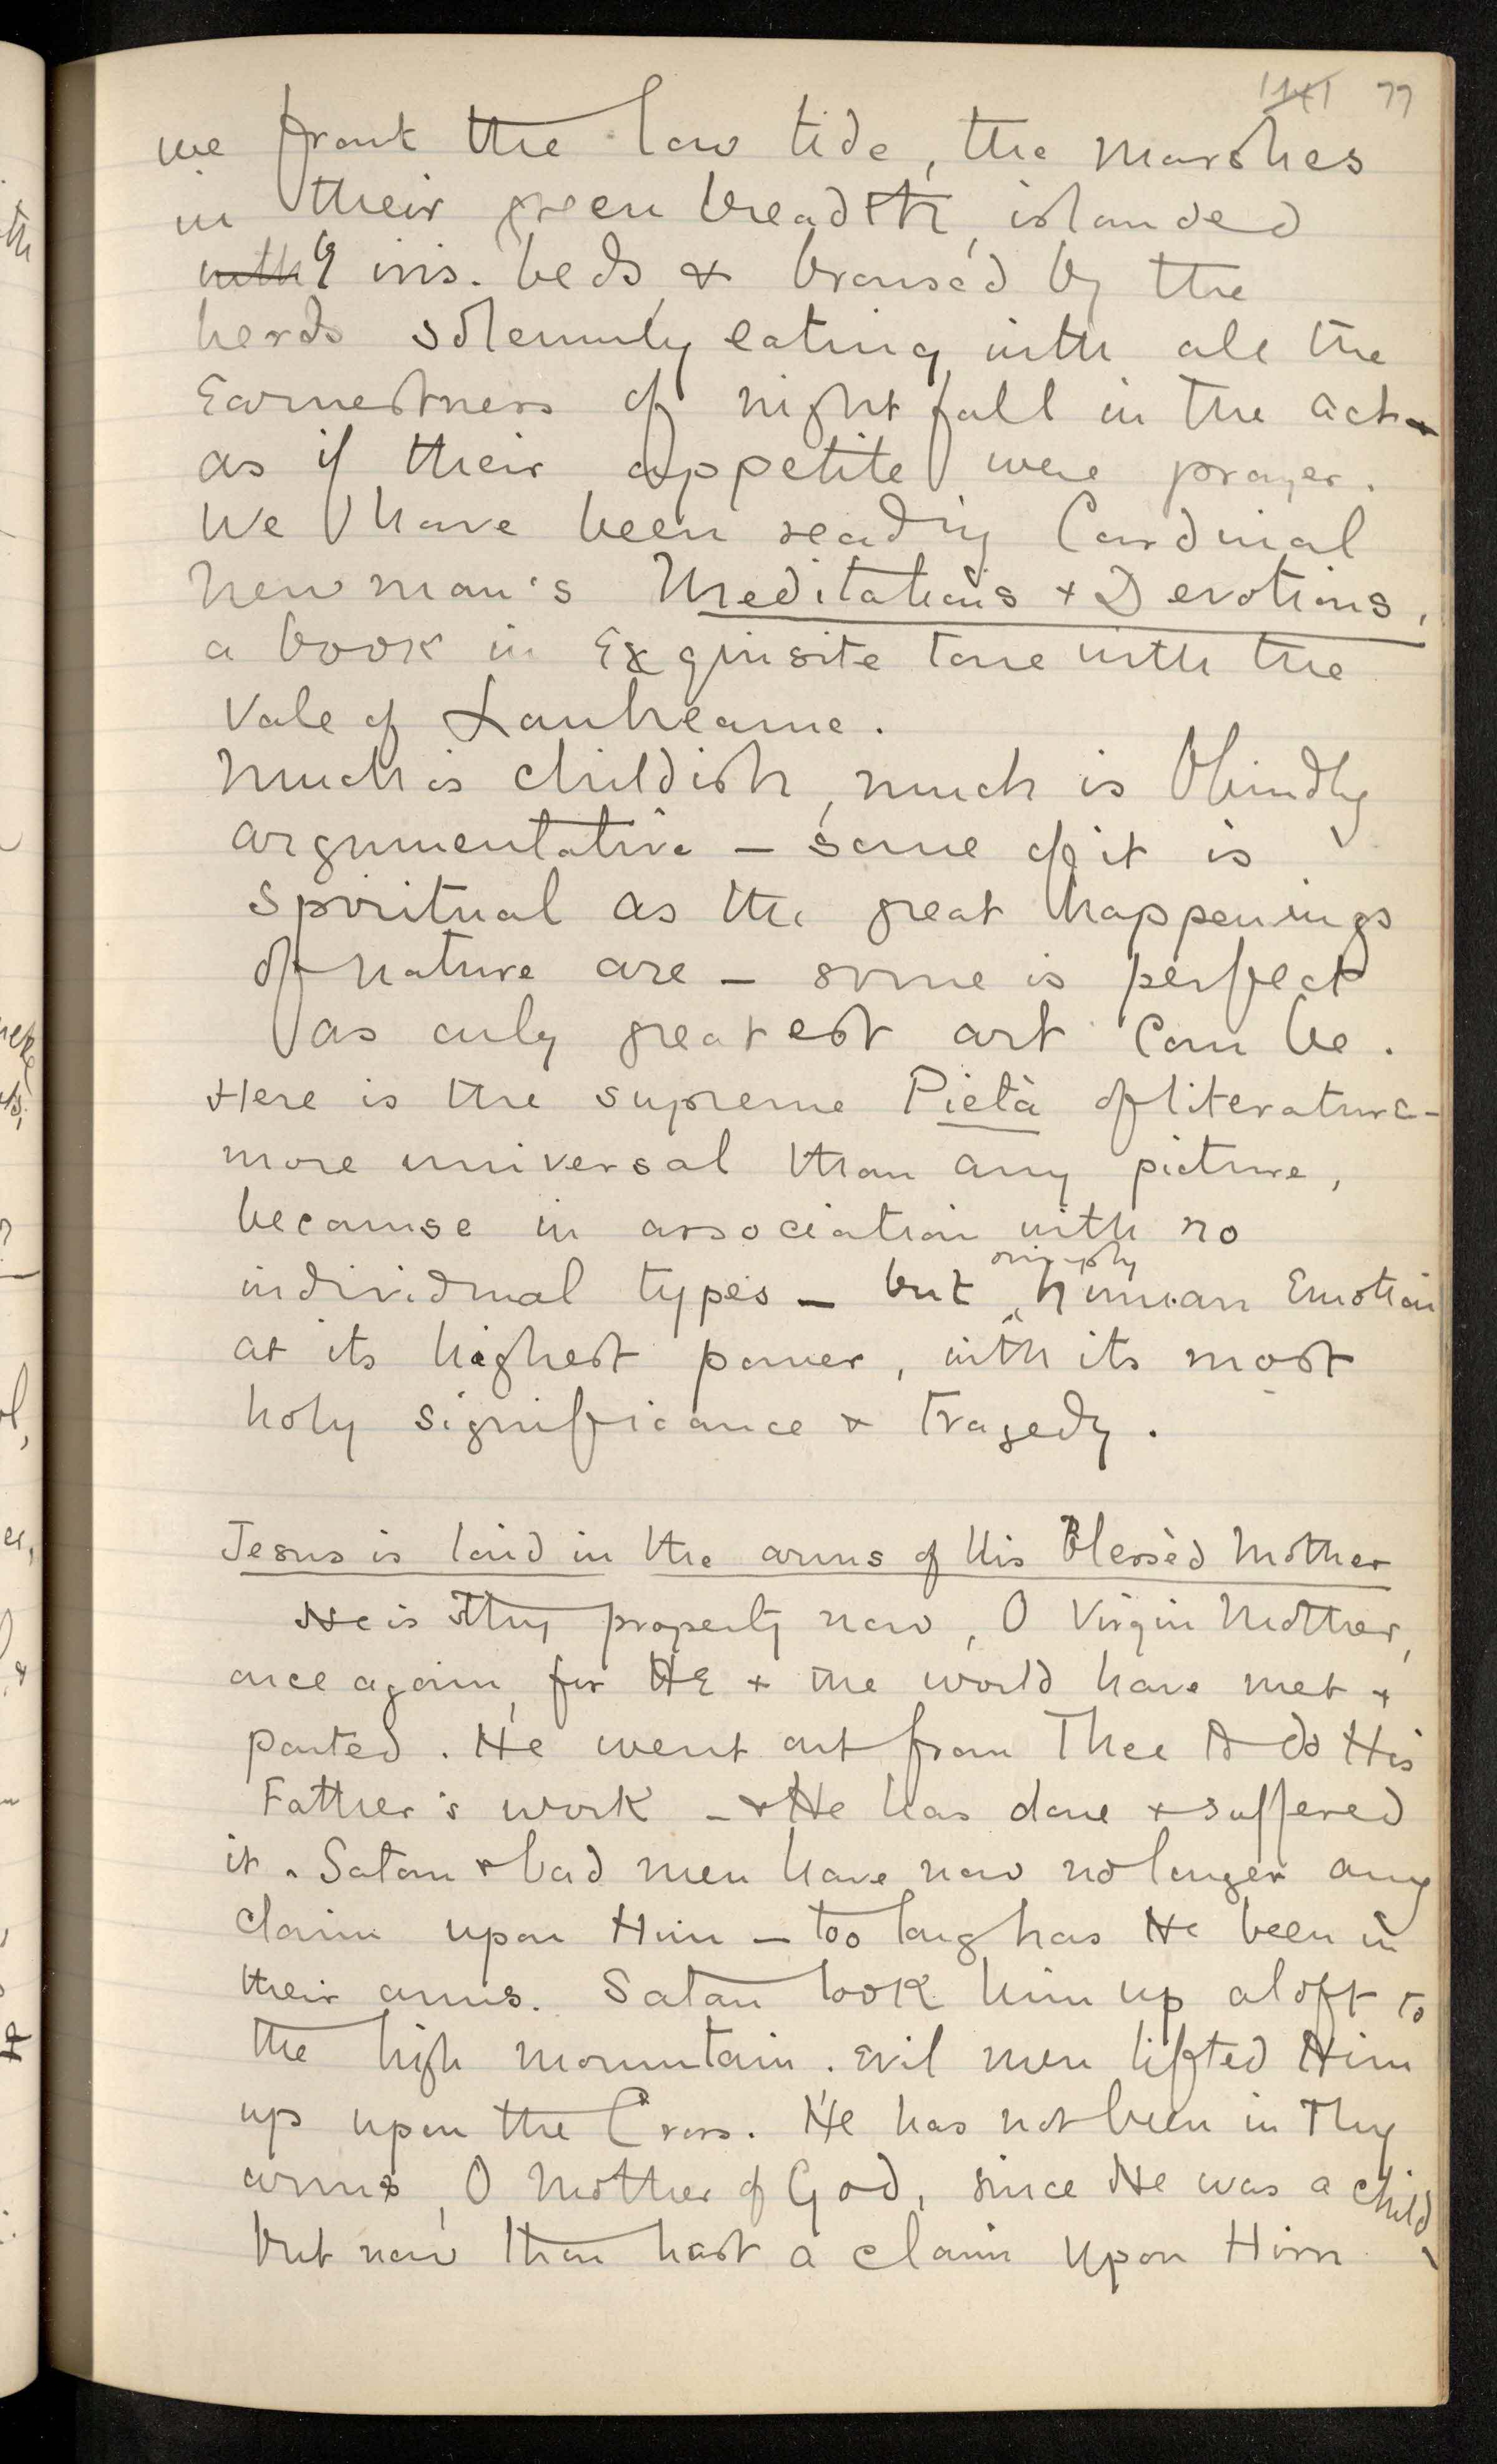 77
we front the low tide, the marshes
in their green breadth, islanded
with by iris-beds & brows'd by the
herds solemnly eating with all the
Earnestness of nightfall in the act
as if their appetite were prayer.
We have been reading Cardinal
Newman's Meditations & Devotions,
a book in Exquisite tone with the
Vale of Lanherne.
Much is childish, much is blindly
argumentative – some of it is
spiritual as the great happenings
of nature are – some is perfect
as only greatest art can be.
Here is the supreme Pietà of literature –
more universal than any picture,
because in association with no
simply
individual types – but human Emotion
at its highest power, with its most
holy significance & tragedy.
Jesus is laid in the arms of His Blessèd Mother
He is Thy property now, O Virgin Mother,
once again, for He & the world have met &
parted. He went out from Thee to do His
Father's work – & He has done & suffered
it. Satan & bad men have now no longer any
claim upon Him – too long has He been in
their arms. Satan took him up aloft to
the high mountain. Evil men lifted Him
up upon the Cross. He has not been in Thy
arms, O Mother of God, since He was a child
but now thou hast a claim upon Him